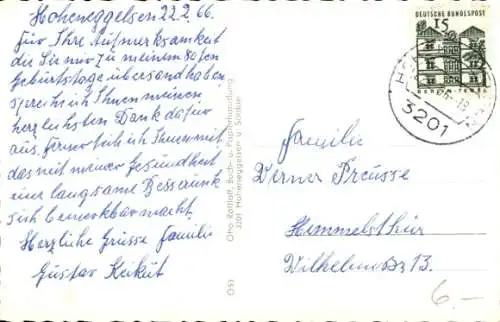 Hoheneggelsen 22.2.66.
Für Ihre Aufmerksamkeit
die Sie mir zu meinem 80sten
Geburtstage übersandt haben,
spreche ich Ihnen meinen
herzlichsten Dank dafür
aus, ferner teile ich Ihnen mit
das mit meiner Gesundheit
eine langsame Besserung
sich bemerkbar macht.
Herzliche Grüsse Familie
Gustav Keikut
Otto Rohloff, Buch- u. Papierhandlung
3201 Hoheneggelsen ü.
O53
DEUTSCHE BUNDESPOST
15
3201
Familie
Werner Preusse
Himmelsthür
Wilhelmstr 13.
6.—